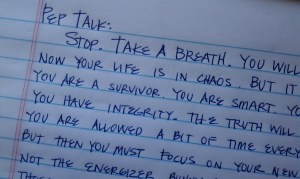 PEP TALK:
STOP. TAKE A BREATH. YOU WILL
NOW YOUR LIFE IS IN CHAOS. BUT IT
YOU ARE A SURVIVOR. YOU ARE SMART. YO
YOU HAVE INTEGRITY. THE TRUTH WILL
YOU ARE ALLOWED A BIT OF TIME EVERY
BUT THEN YOU MUST FOCUS ON YOUR NEW
NOT THE ENERGIZER